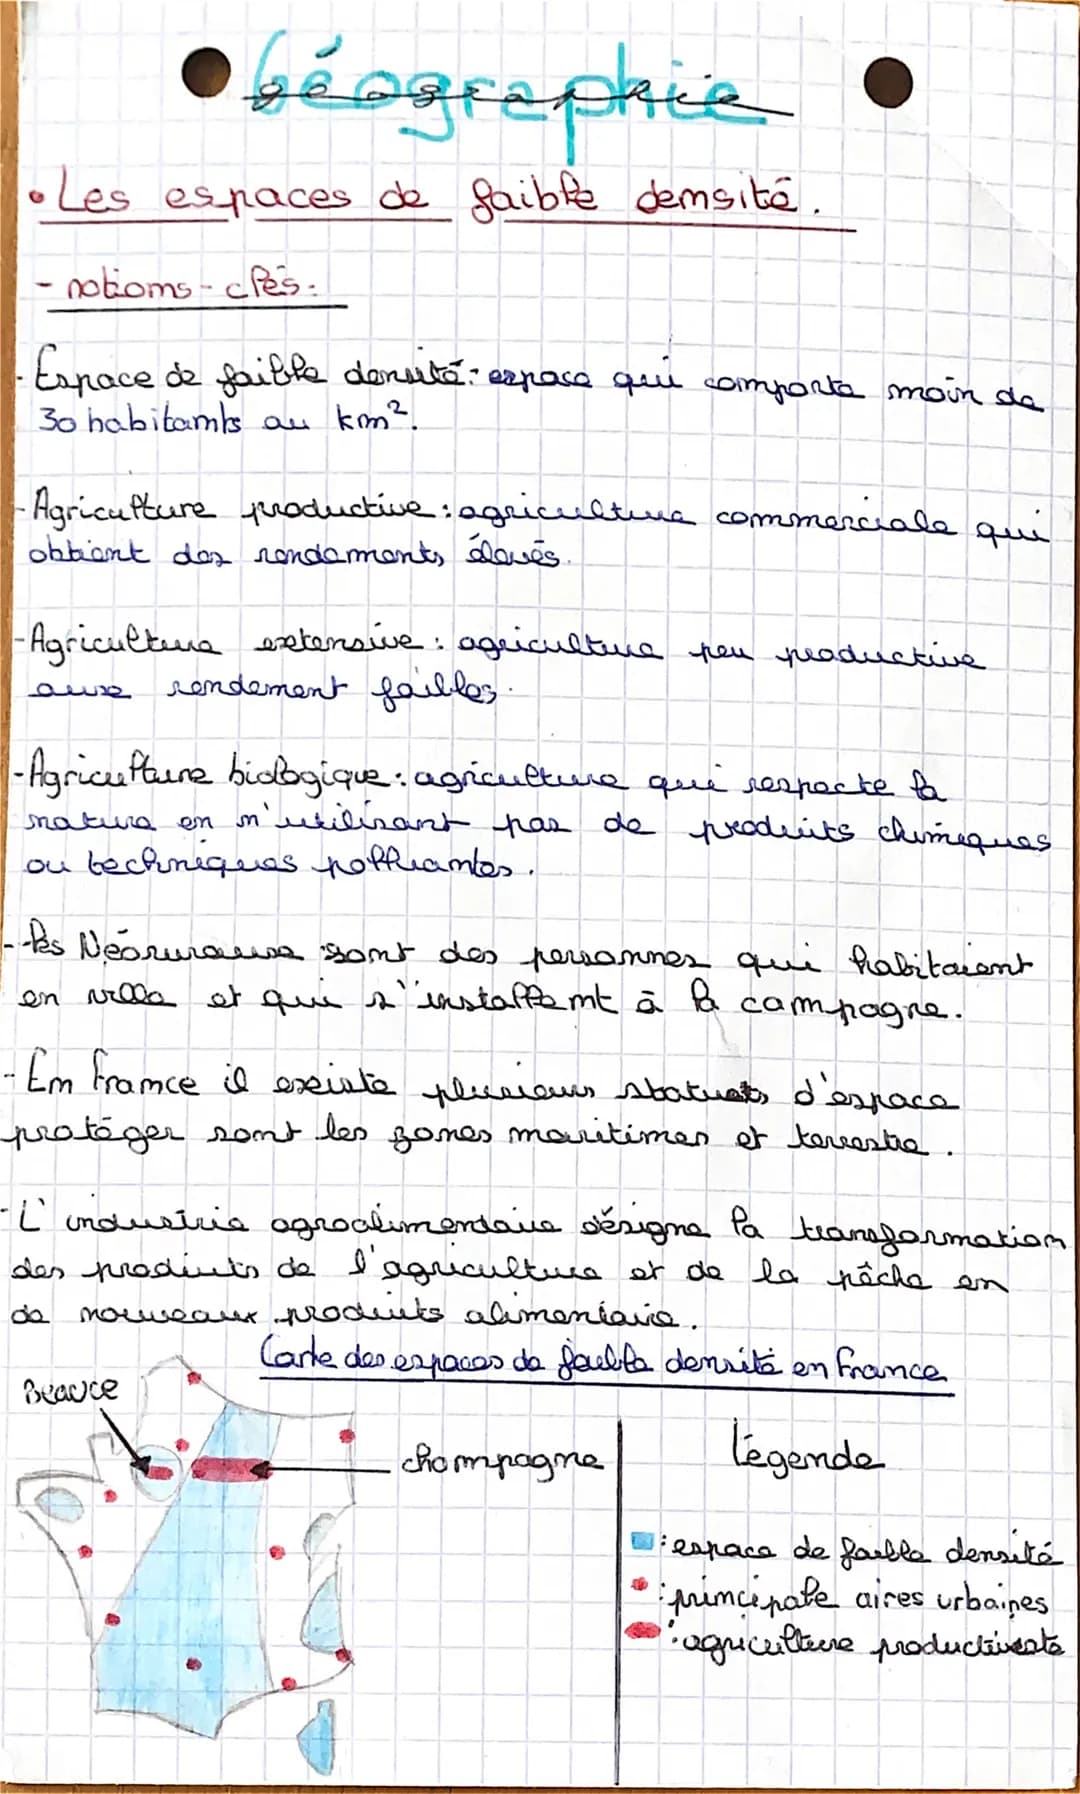 Géographie
• Les espaces de faible densité.
- notions-clés:
- Espace de faible densité: espace qui comporte moin de
30 habitants au km².
- Agriculture productive: agriculture commerciale qui
obtient des rendements élevés.
- Agriculture extensive: agriculture peu productive
aux rendement faibles.
- Agriculture biologique: agriculture qui respecte la
nature en n'utilisant pas de produits chimiques
ou techniques polluantes.
- les Néoruraux sont des personnes qui habitaient
en ville et qui s'installent à la campagne.
- En France il existe plusieurs statuts d'espace
protéger sont les zones maritimes et terrestre.
- L'industrie agroalimentaire désigne la transformation
des produits de l'agriculture et de la pêche en
de nouveaux produits alimentaire.
Carte des espaces de faible densité en France
Beauce
champagne
Légende
: espace de faible densité
: principale aires urbaines
: agriculture productiviste